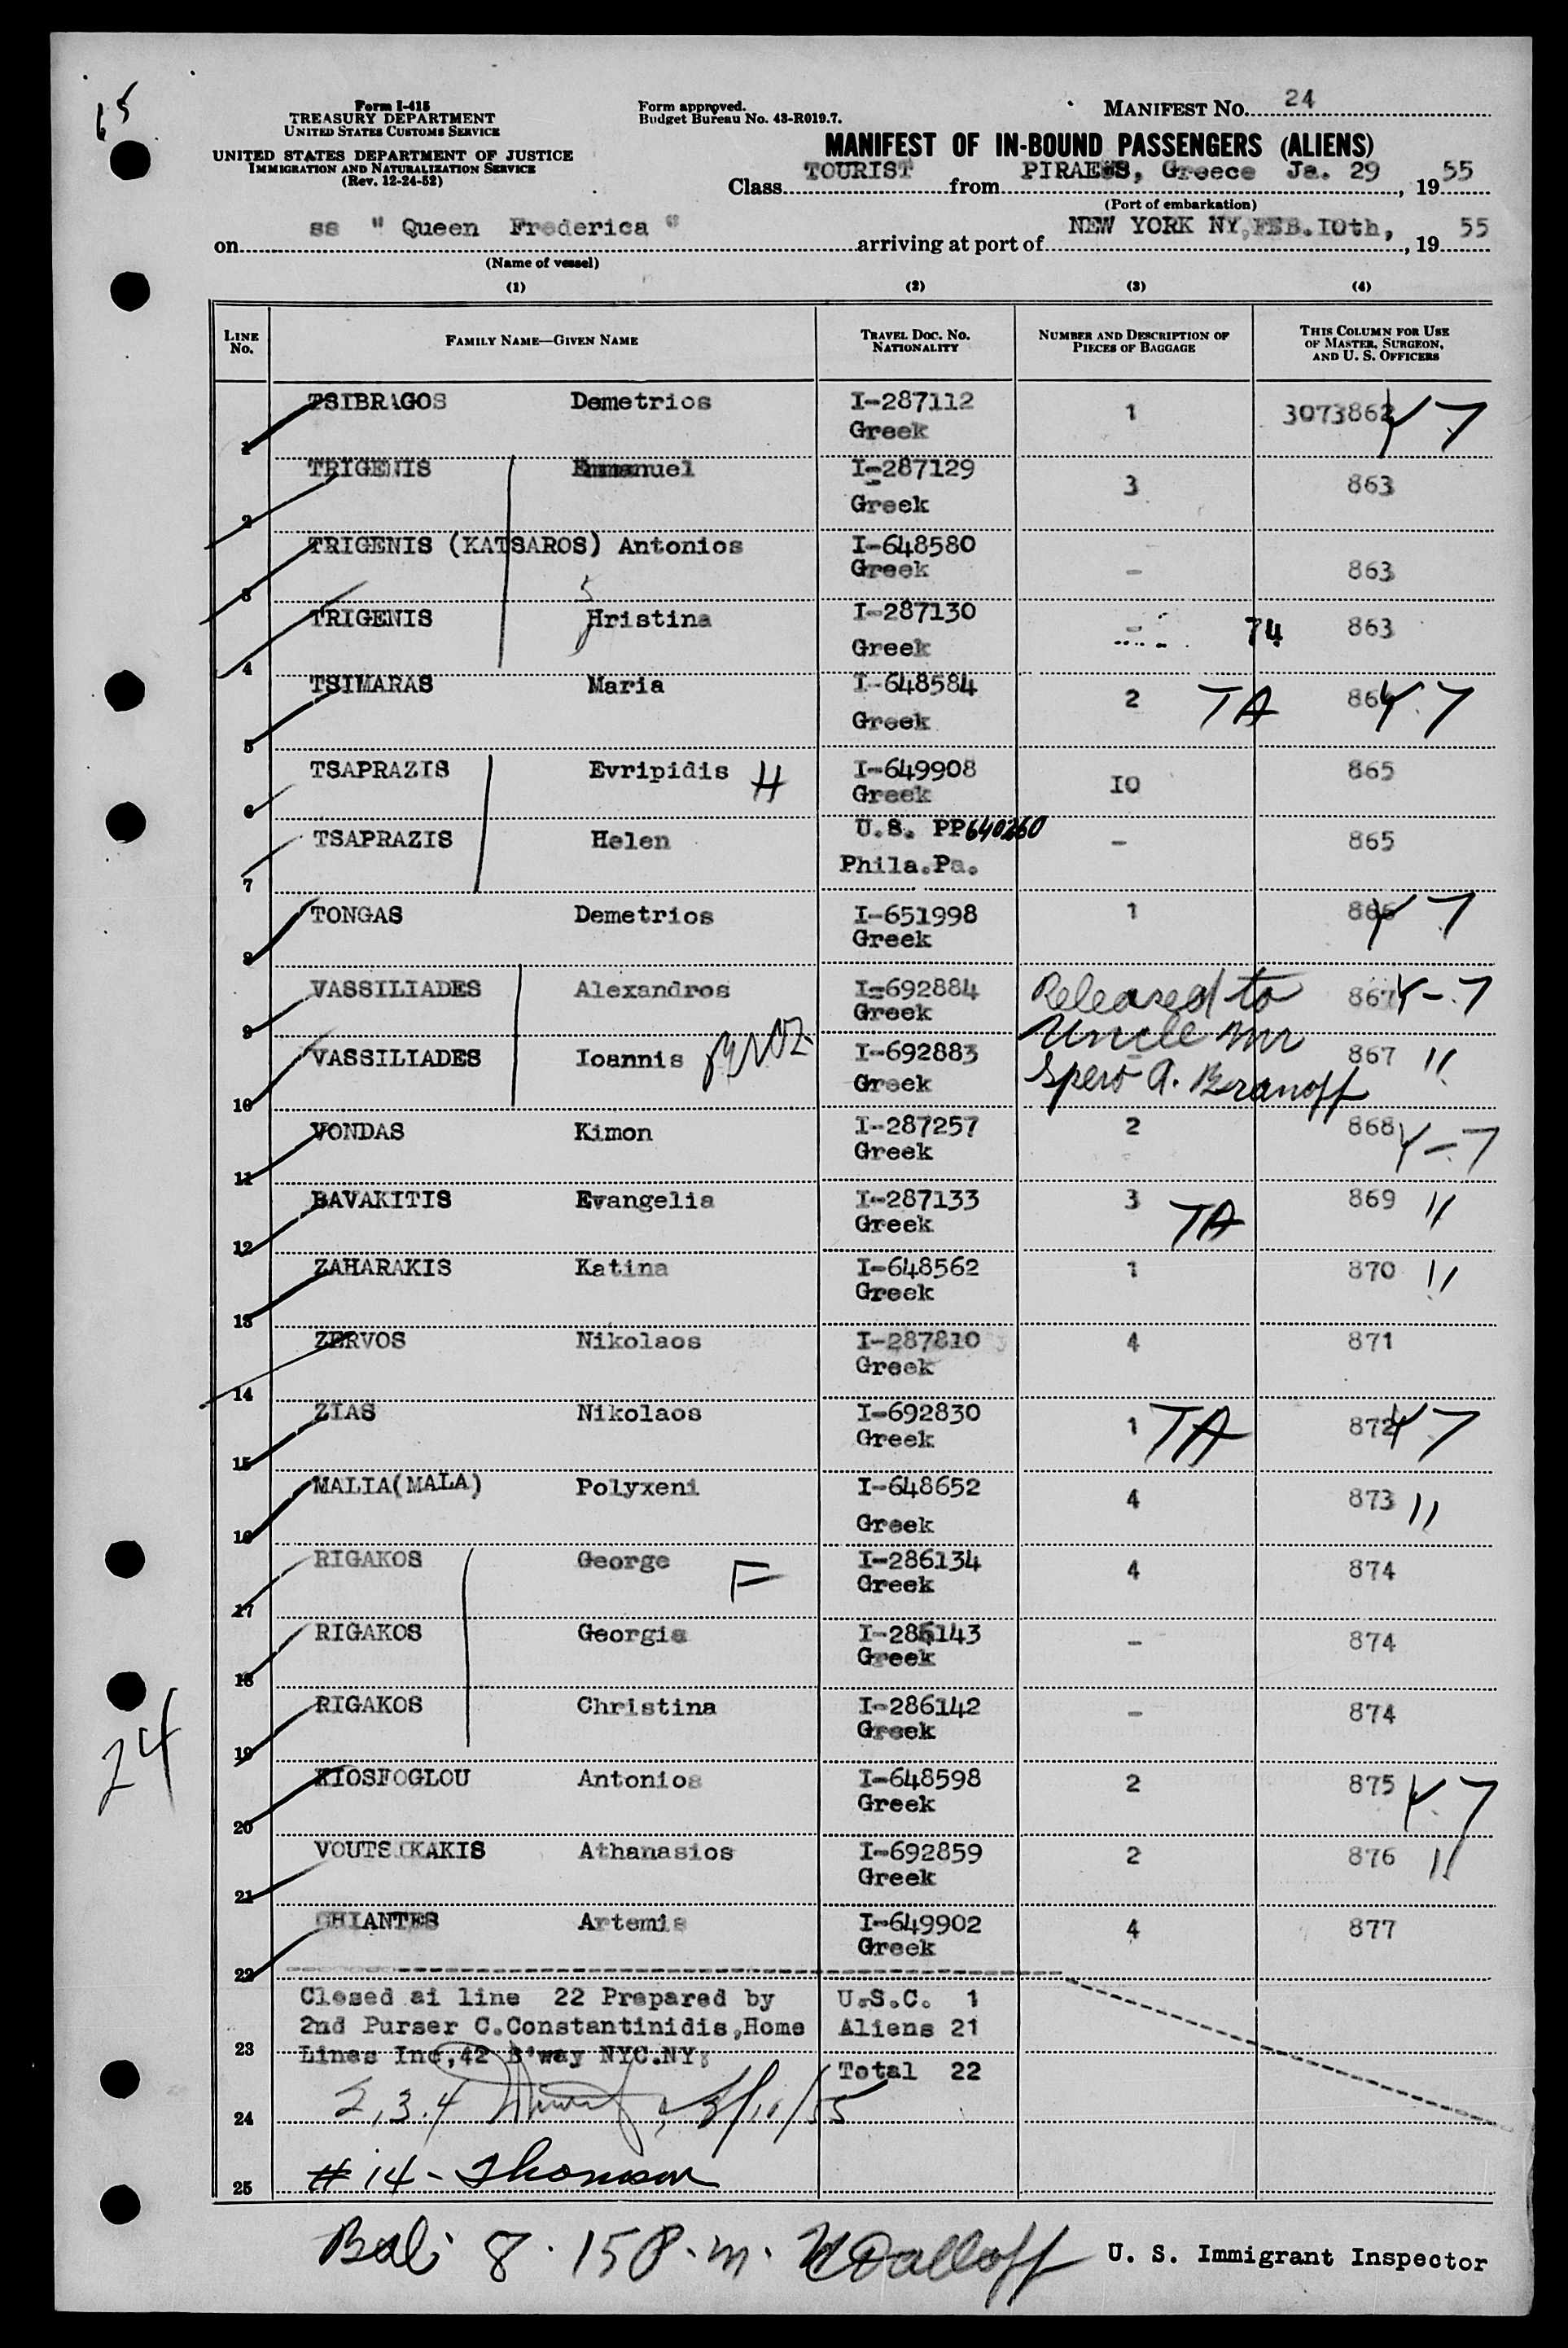 65
Form I-415
TREASURY DEPARTMENT
UNITED STATES CUSTOMS SERVICE
UNITED STATES DEPARTMENT OF JUSTICE
IMMIGRATION AND NATURALIZATION SERVICE
(Rev. 12-24-52)
Form approved.
Budget Bureau No. 43-R019.7.
MANIFEST NO. 24
MANIFEST OF IN-BOUND PASSENGERS (ALIENS)
Class TOURIST from PIRAEUS, Greece Ja. 29, 1955
(Port of embarkation)
on ss " Queen Frederica " arriving at port of NEW YORK NY, FEB. I0th, , 1955
(Name of vessel)
(1) (2) (3) (4)
LINE NO. FAMILY NAME—GIVEN NAME TRAVEL DOC. NO. NATIONALITY NUMBER AND DESCRIPTION OF PIECES OF BAGGAGE THIS COLUMN FOR USE OF MASTER, SURGEON, AND U. S. OFFICERS
1 TSIBRAGOS Demetrios I-287112 Greek 1 3073862 Y 7
2 TRIGENIS Emmanuel I-287129 Greek 3 863
3 TRIGENIS (KATSAROS) Antonios I-648580 Greek - 863
4 TRIGENIS Hristina I-287130 Greek - 74 863
5 TSIMARAS Maria I-648584 Greek 2 TA 864 Y.7
6 TSAPRAZIS Evripidis H I-649908 Greek I0 865
7 TSAPRAZIS Helen U.S. PP640260 Phila.Pa. - 865
8 TONGAS Demetrios I-651998 Greek 1 866 Y 7
9 VASSILIADES Alexandros I-692884 Greek Released to 867 Y-7
10 VASSILIADES Ioannis I-692883 Greek Uncle Mr Spero A. Branoff 867 "
11 VONDAS Kimon I-287257 Greek 2 868 Y-7
12 BAVAKITIS Evangelia I-287133 Greek 3 TA 869 "
13 ZAHARAKIS Katina I-648562 Greek 1 870 "
14 ZERVOS Nikolaos I-287810 Greek 4 871
15 ZIAS Nikolaos I-692830 Greek 1 TA 872 Y 7
16 MALIA(MALA) Polyxeni I-648652 Greek 4 873 "
17 RIGAKOS George F I-286134 Greek 4 874
18 RIGAKOS Georgia I-286143 Greek - 874
19 RIGAKOS Christina I-286142 Greek - 874
20 KIOSFOGLOU Antonios I-648598 Greek 2 875 Y.7
21 VOUTSIKAKIS Athanasios I-692859 Greek 2 876 "
22 GHIANTES Artemis I-649902 Greek 4 877
24
Closed ai line 22 Prepared by U.S.C. 1
2nd Purser C.Constantinidis,Home Aliens 21
23 Lines Inc,42 B'way NYC.NY; Total 22
24 2,3.4 2/11/55
25 # 14 - Thomson
8.15 P.m. U. S. Immigrant Inspector